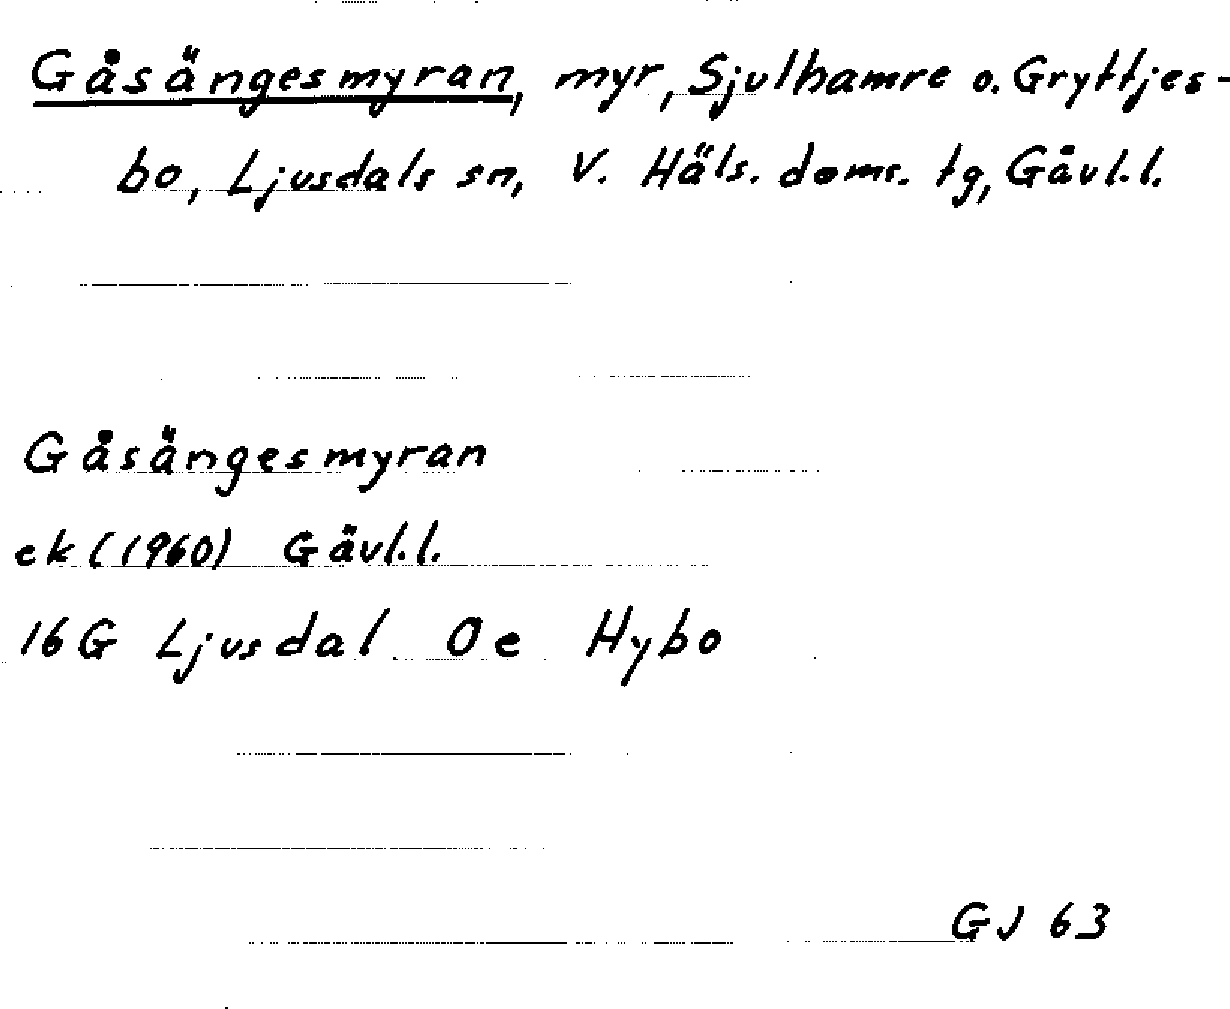 Gåsängesmyran, myr, Sjulhamre o. Gryttjes-
bo, Ljusdals sn, V. Häls. doms. tg, Gävl.l.
Gåsängesmyran
ek (1960) Gävl.l.
16G Ljusdal 0e Hybo
GJ 63